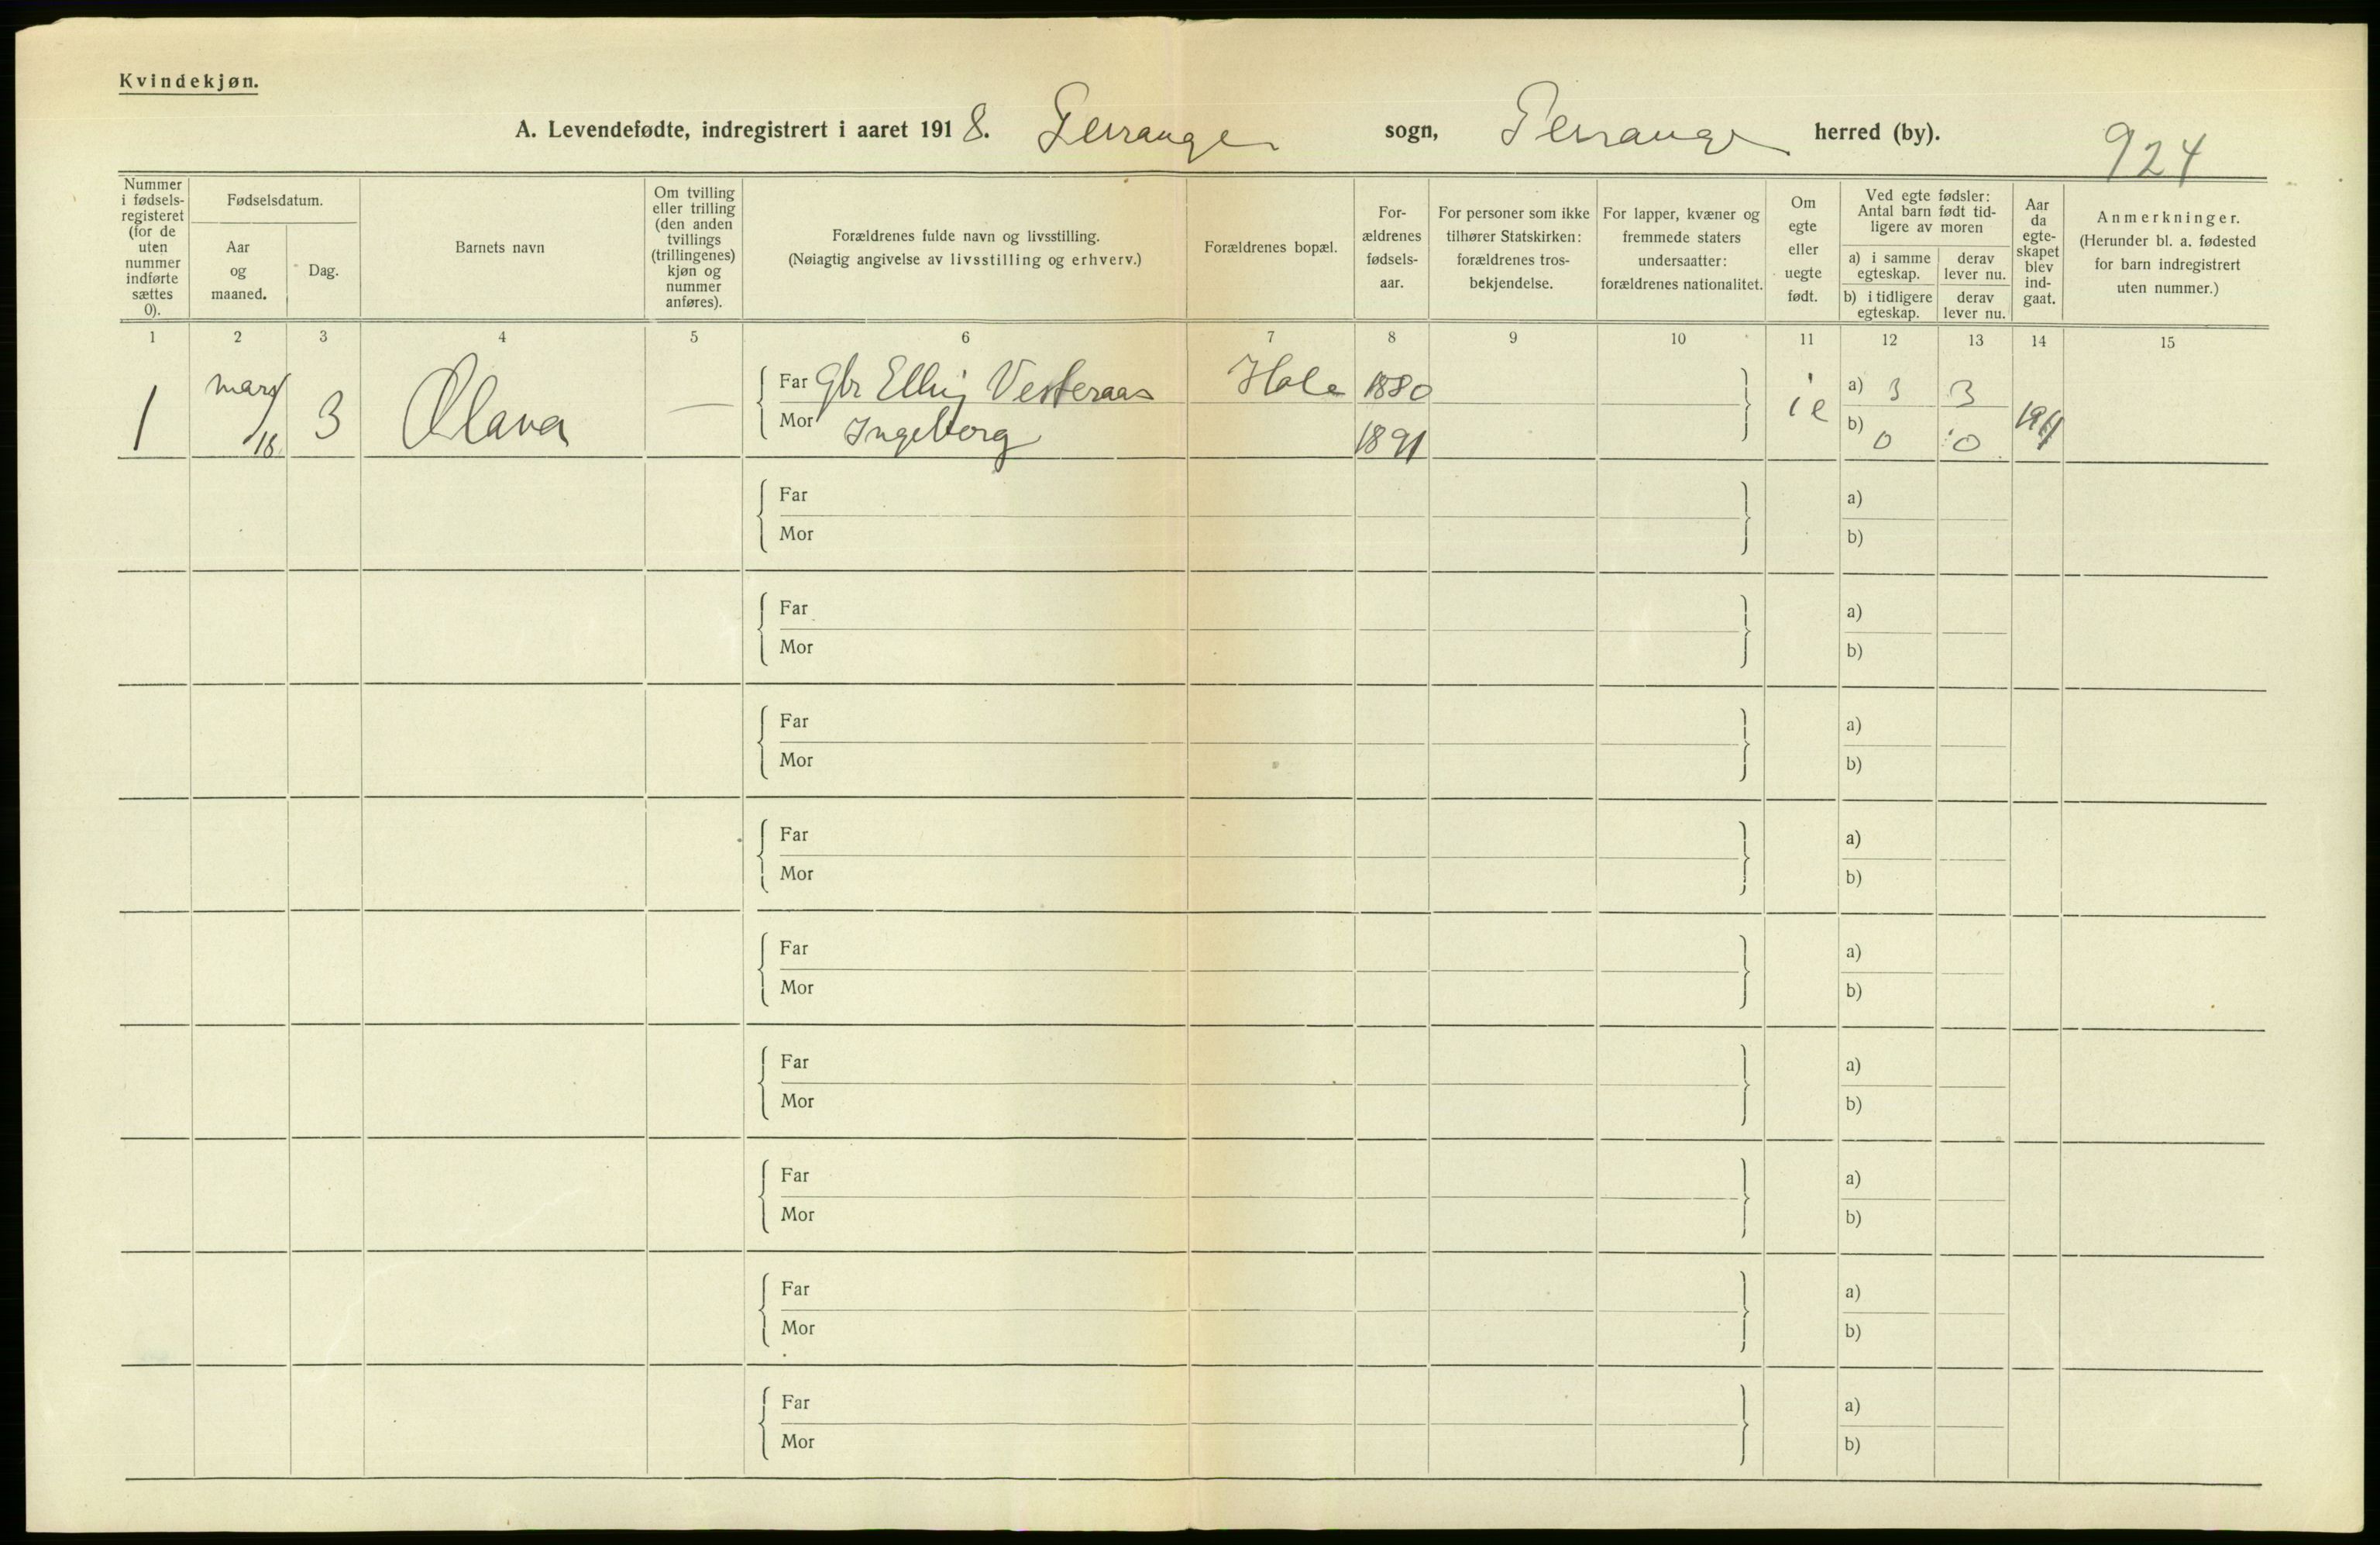 Kvindekjøn.
A. Levendefødte, indregistrert i aaret 1918. sogn, herred (by).
924
Nummer i fødselsregisteret (for de uten nummer indførte sættes 0).
Fødselsdatum.
Aar og maaned.
Dag.
Barnets navn
Om tvilling eller trilling (den anden tvillings (trillingenes) kjøn og nummer anføres).
Forældrenes fulde navn og livsstilling.
(Nøiagtig angivelse av livsstilling og erhverv.)
Forældrenes bopæl.
Forældrenes fødselsaar.
For personer som ikke tilhører Statskirken: forældrenes trosbekjendelse.
For lapper, kvæner og fremmede staters undersaatter: forældrenes nationalitet.
Om egte eller uegte født.
Ved egte fødsler: Antal barn født tidligere av moren
a) i samme egteskap.
derav lever nu.
b) i tidligere egteskap.
derav lever nu.
Aar da egteskapet blev indgaat.
Anmerkninger.
(Herunder bl. a. fødested for barn indregistrert uten nummer.)
1 2 3 4 5 6 7 8 9 10 11 12 13 14 15
1 mars 18. 3 Olava — Far Gbr Elling Vesteraas Hole 1880 ie a) 3 3 1911
Mor Ingeborg 1891 b) 0 0
Far a)
Mor b)
Far a)
Mor b)
Far a)
Mor b)
Far a)
Mor b)
Far a)
Mor b)
Far a)
Mor b)
Far a)
Mor b)
Far a)
Mor b)
Far a)
Mor b)